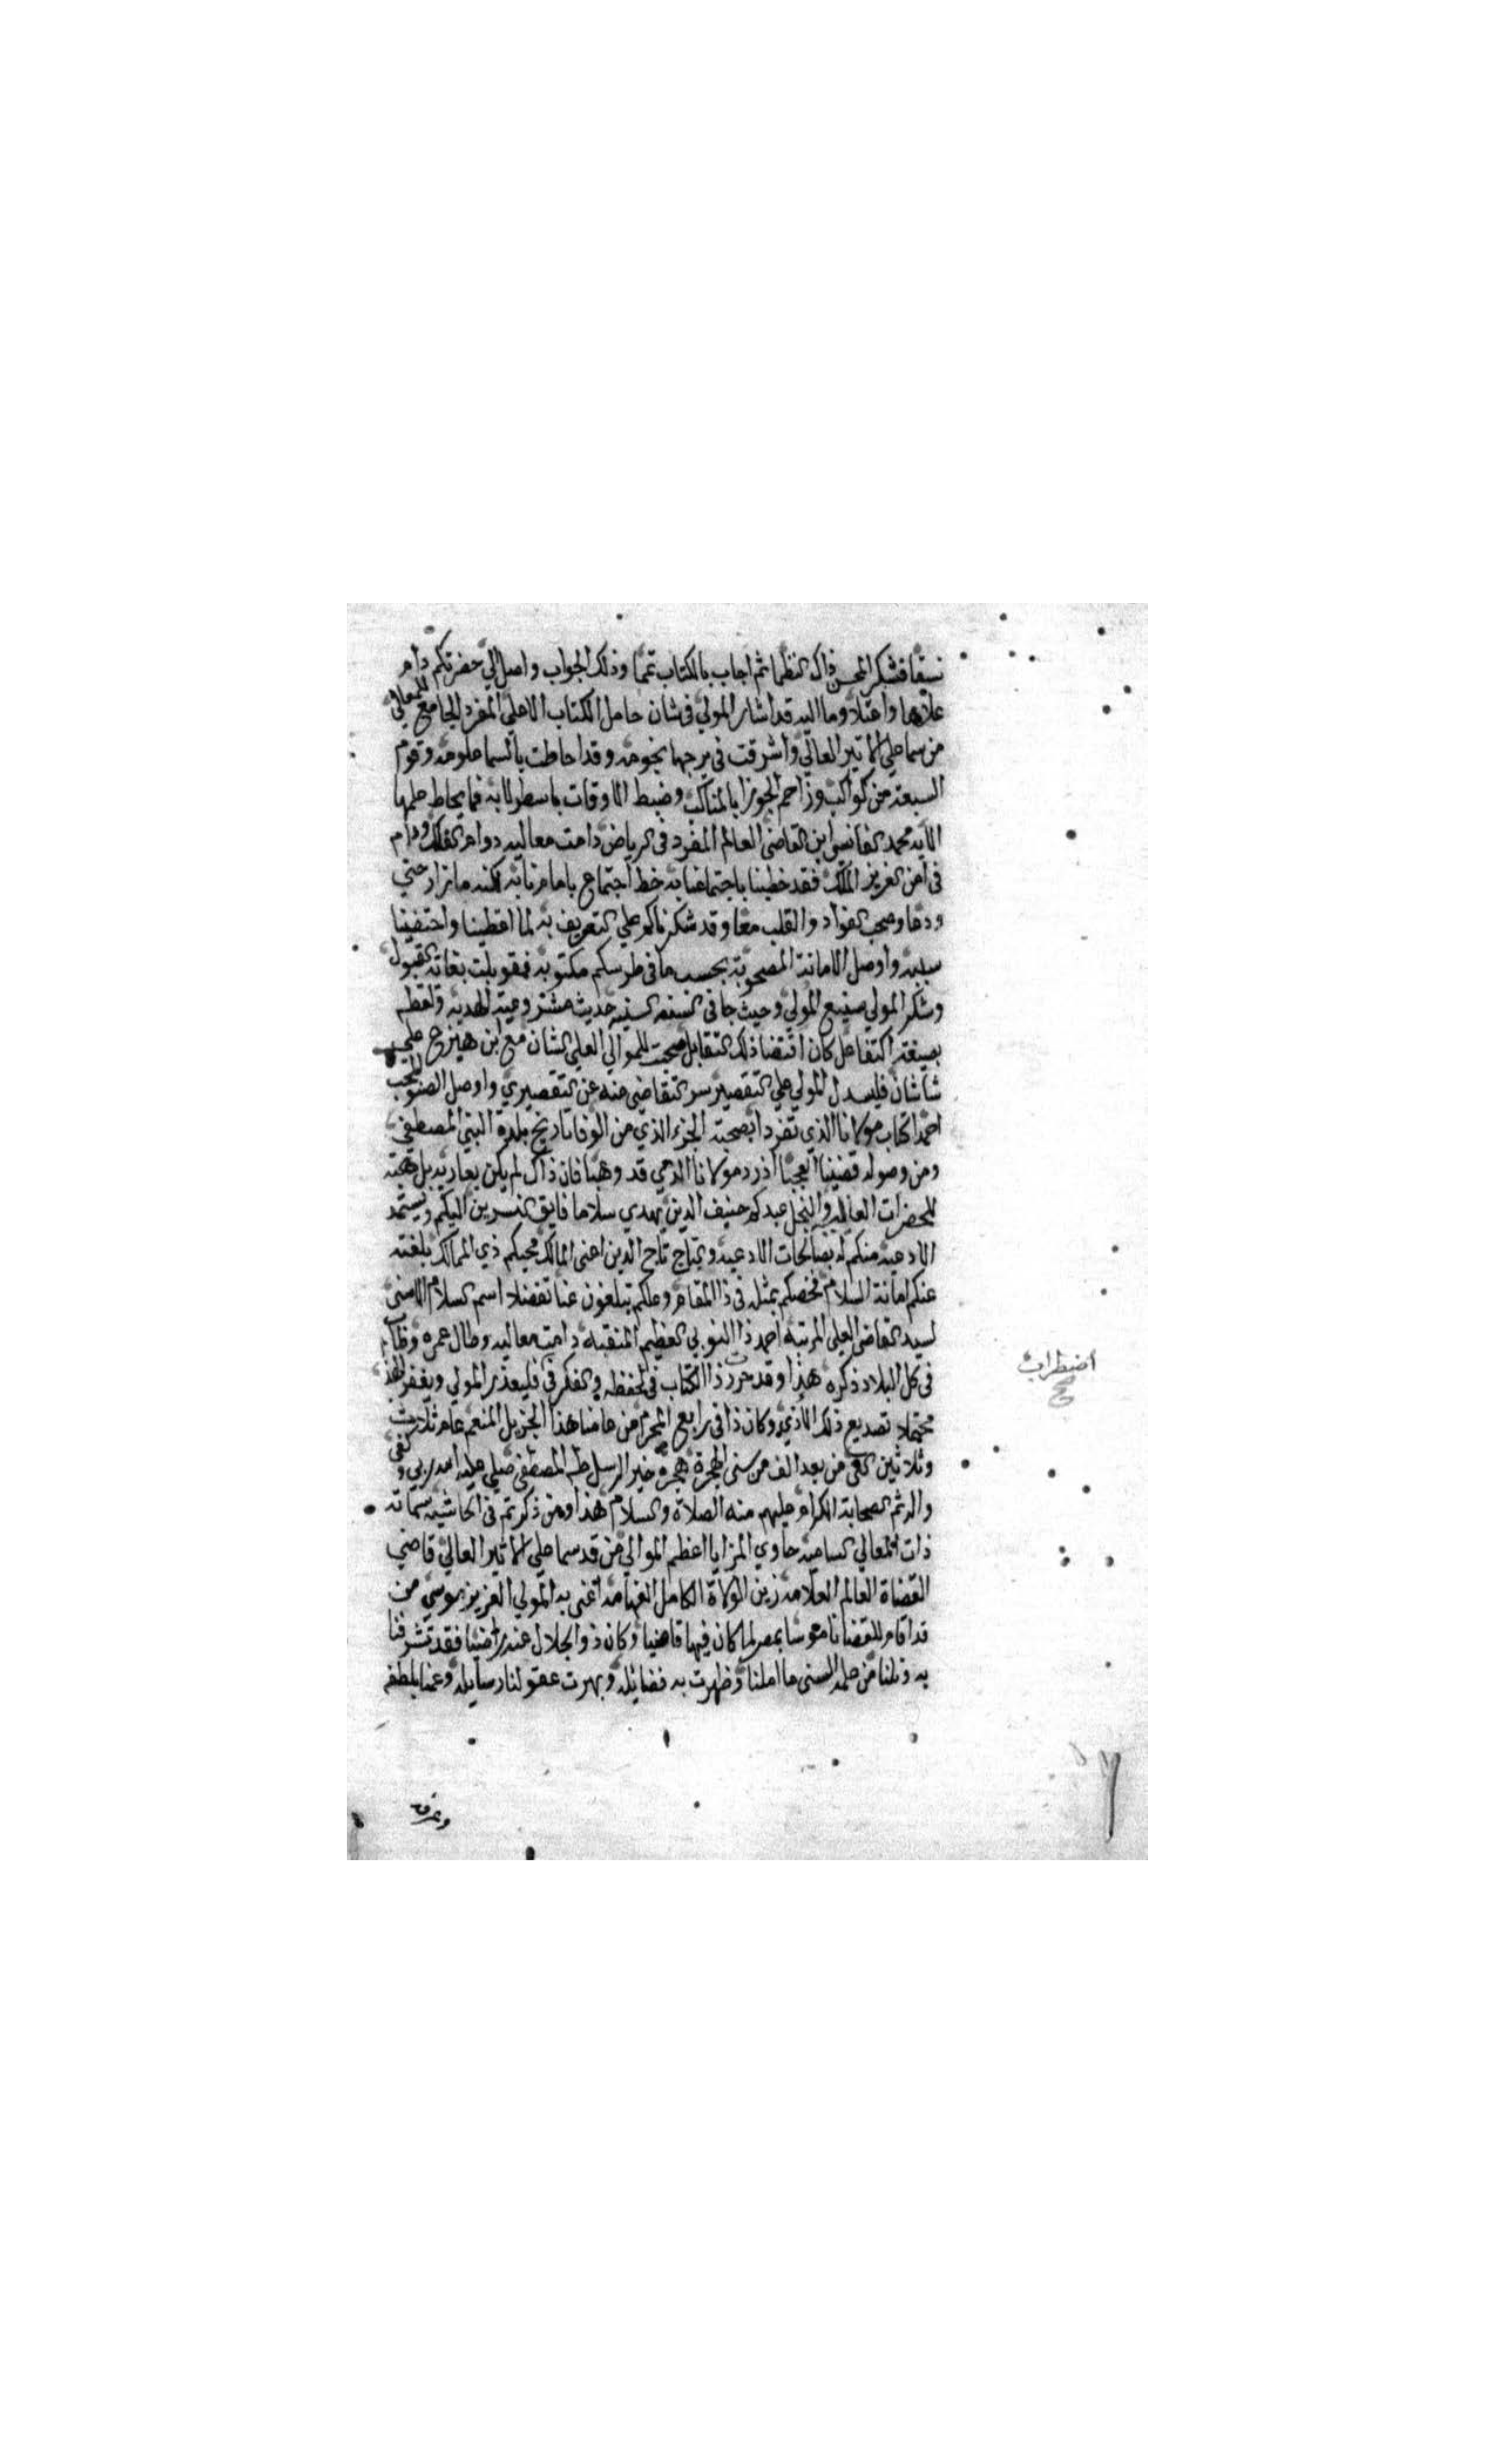 نسقا فشكر المحسن ذاك النظما ثم اجاب بالكتاب تمما وذلك الجواب واصل الي حضرتكم دام
علاها واعتلا وما اليه قد اشار المولي في شان حامل الكتاب الاعلي المفرد الجامع للمعالي
من سما علي الاثير العالي واشرقت في برجها نجومه وقد احاطت بالسما علومه وقوم
السبعة من كواكب وزاحم الجوزا بالمناكب وضبط الاوقات باسطرلابه فما يحاط علمها
الا به محمد الفانسي ابن القاضي العالم المفرد في الرياض دامت معاليه دوام الفلك ودام
في امن العزيز الملك فقد حظينا باجتماعنا به حظ اجتماع بامام نابه لكنه ما زار حتي
ودعا وصحب الفواد والقلب معا وقد شكرناكم علي التعريف به لما اعطينا واحتفينا
بسببه واوصل الامانة المصحوبة بحسب ما في طرسكم مكتوبة فقوبلت بغاية القبول
وشكر المولي صنيع المولي وحيث جا في السنة السنيه حديث مشروعية الهديه ولفظه
بصيغة التفاعل كان اقتضا ذلك التقابل صحبت للموالي العلي الشان مع ابن هيزع علي
شاشان فليسدل المولي علي التقصير ستر التغاضي منه عن التقصيري واوصل الصنو المحب
احمد اكتاب مولانا الذي تفردا بصحبة الجزء الذي من الوفا تاريخ بلدة النبي المصطفي
ومن وصوله قضينا العجبا اذ رد مولانا الذي قد وهبا فان ذاك لم يكن بعاريه بل هبة
للحضرات العاليه والنجل عبدكم حنيف الدين يهدي سلاما فايق النسرين اليكم ويستمد
الادعيه منكم له بصالحات الادعيه وتاج تاج الدين اعني المالك محبكم ذي الممالك بلغته
عنكم امانة السلام فخصكم بمثله في ذا المقام وعلكم تبلغون عنا تفضلا اسم السلام الاسني
لسيد القاضي العلي المرتبه احمد ذا النوبي العظيم المنقبه دامت معاليه وطال عمره وطاب
في كل البلاد ذكره هذا وقد حررت ذا الكتاب في لحظة والفكر في فليعذر المولي ويغفر الهذا
محتملا تصديع ذلك الاذي وكان ذا في رابع المحرم من عامنا هذا الجزيل المنعم عام ثلاث
وثلاثين من بعد الف من سني الهجرة هجرة خير الرسل طه المصطفي صلي عليه الله ربي وكفي
واله ثم الصحابة الكرام عليهم منه الصلاة والسلام هذا ومن ذكرتم في الحاشيه سماته
ذات المعالي الساميه حاوي المزايا اعظم الموالي من قد سما علي الاثير العالي قاضي
القضاة العالم العلامه زين الولاة الكامل الفهامه اعني به المولي العزيز موسي من
قد اقام للقضا ناموسا بمصر لما كان فيها قاضيا وكان ذو الجلال عنه راضيا فقد تشرفنا
به ونلنا من علمه السني ما املنا وظهرت به فضائله وبهرت عقولنا رسايله وعمنا بلطفه
اضطراب
صح
وعرفه